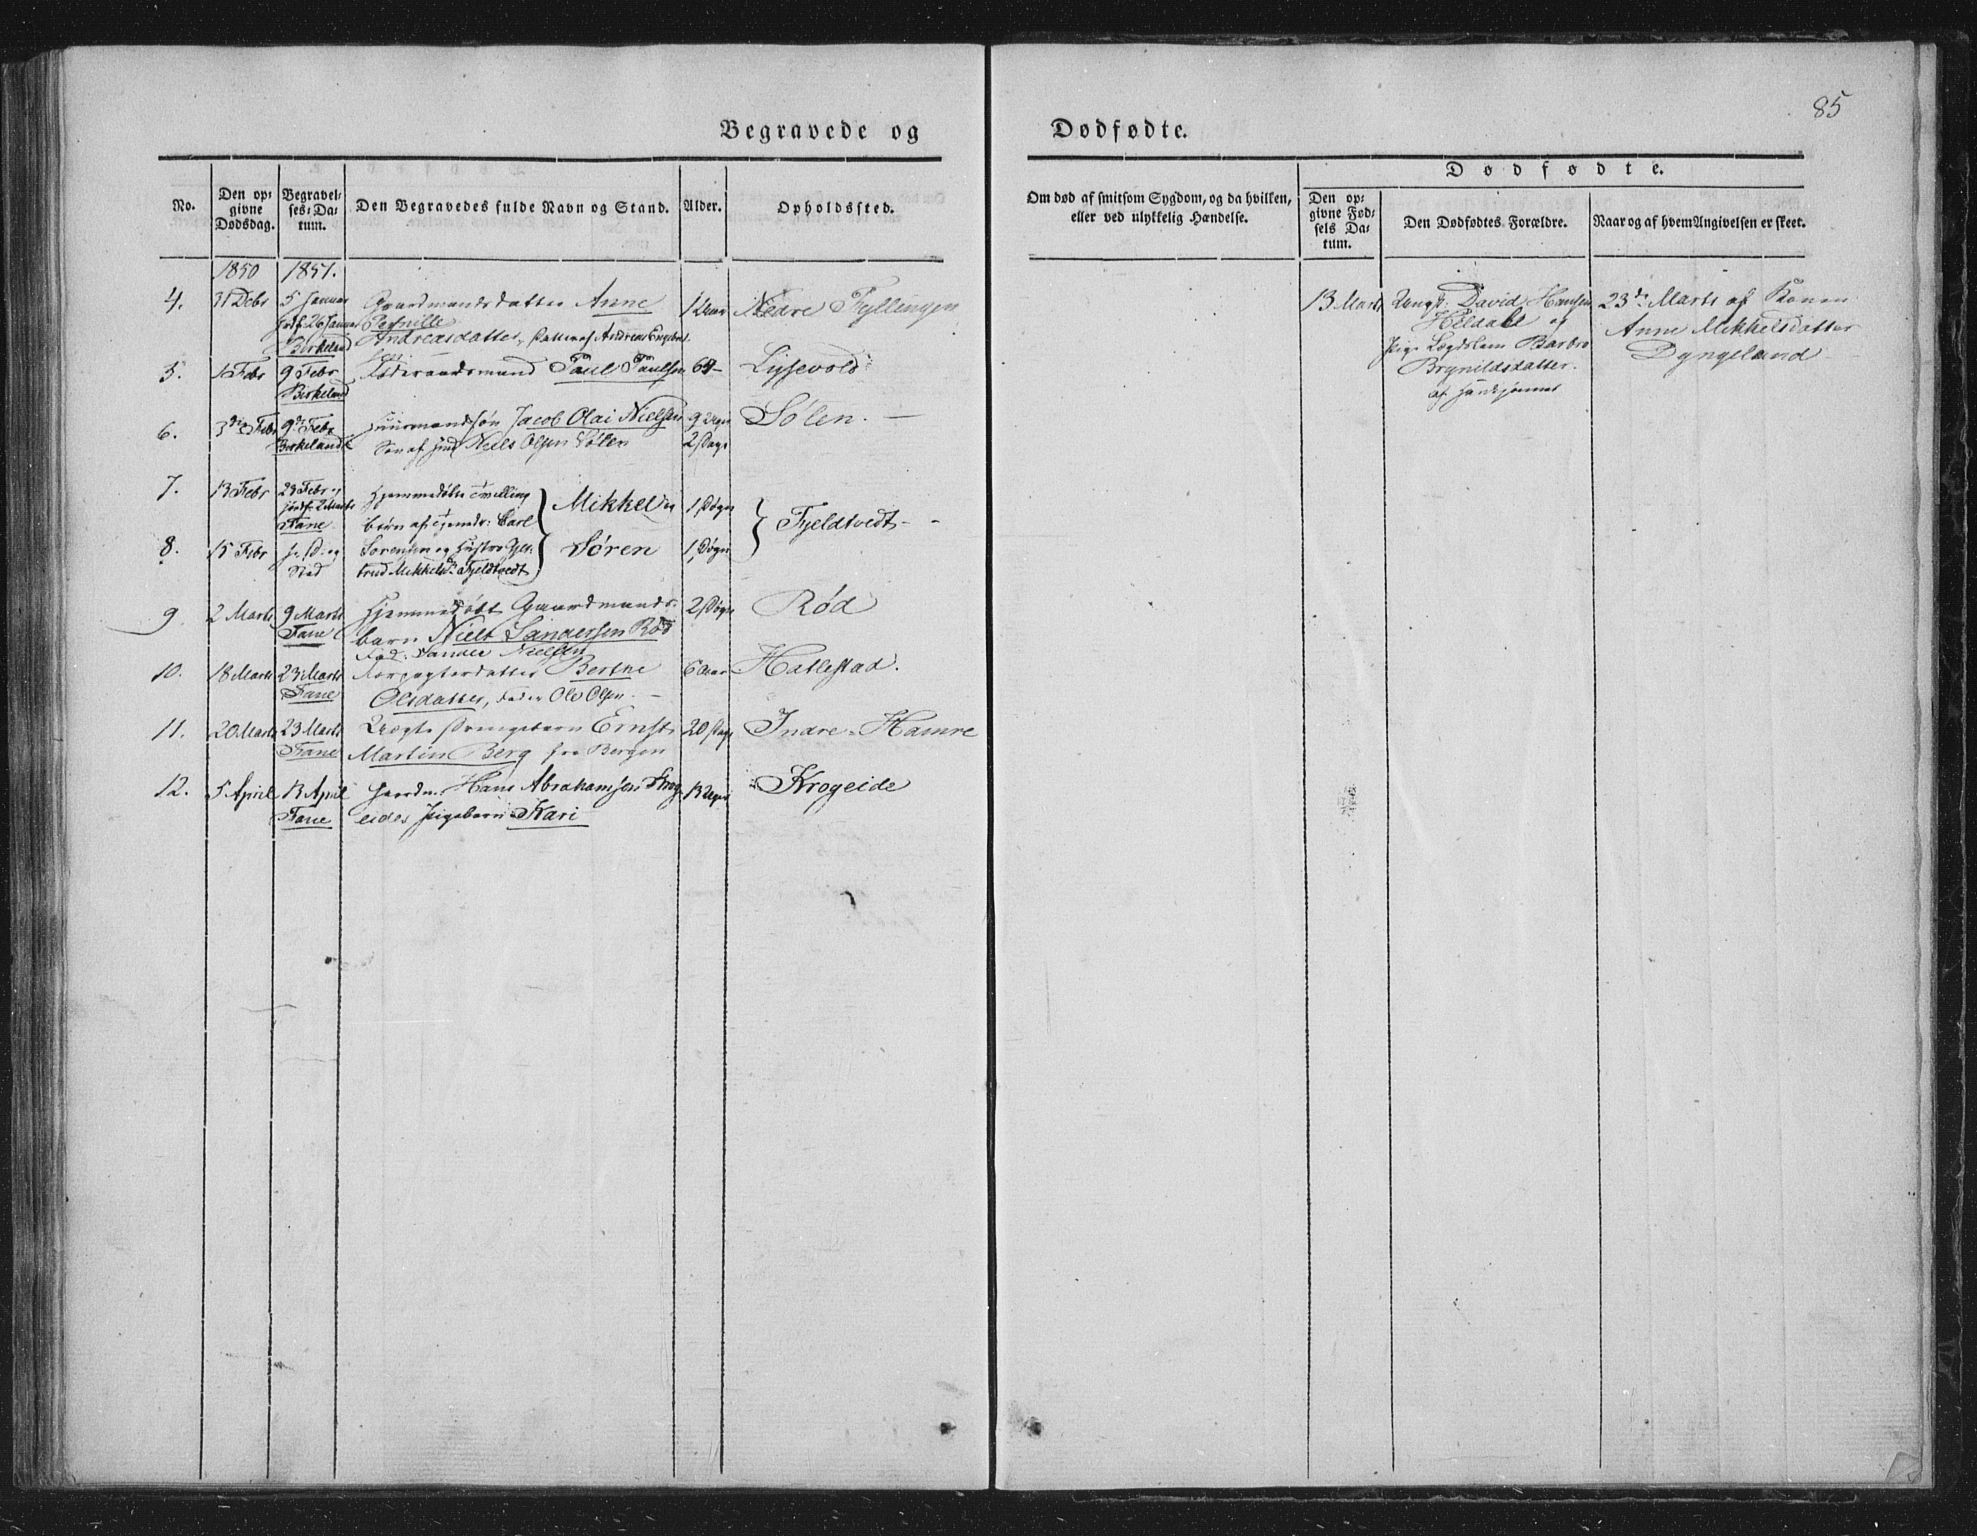 85
Begravede og Dødfødte.
No.
Den opgivne Dødsdag.
Begravelses-Datum.
Den Begravedes fulde Navn og Stand.
Alder.
Opholdssted.
Om død af smitsom Sygdom, og da hvilken, eller ved ulykkelig Hændelse.
Dødfødte.
Den opgivne Fødsels Datum.
Den Dødfødtes Forældre.
Naar og af hvem Angivelsen er skeet.
1850 1851.
4. 31 Debr 5 Januar Gaardmandsdatter Anne 1 Nedre Fyllingen
jordf. 26 Januar Pernille
Birkeland Andreasdatter, Datter af Andreas
5. 1 Febr 9 Febr Føderaadsmand Paul Paulsen 64 - Lyssevold
Birkeland
6. 3die Febr 9de Febr Huusmandssøn Jacob Olai Nielsen 9 Uger Sølen. -
Birkeland Søn af Niels Olsen Sølen 2 Dage
7. 13 Febr 23 Febr Hjemmedøbte Tvilling
jordf. 2 Marts Mikkel og 1 Døgn
Fane børn af Carl Fjeldtvedt -
8. 15 Febr Sørensen og Hustro Gjer- Søren 1 Døgn
Sted trud Mikkelsd. Fjeldtvedt
9. 2 Marts 9 Marts Hjemmedøbt Gaardmands- 2 Døgn Rød
Fane barn Niels Sandersen Rød
Sander Nielsen
10. 18 Marts 23 Marts Forpagterdatter Berthe 6 Aar Hatlestad.
Fane Olsdatter, Fader Ole Olsen. -
11. 20 Marts 23 Marts Uægte Drengebarn Ernst 20 Dage Indre Hamre
Fane Martin Berg fra Bergen
12. 5 April 13 April Gaardm. Hans Abrahamsen Krog- 13 Uger Krogeide
Fane eides Pigebarn Kari
13 Marts Ungk: David Hansen 23de Marts af Konen
Heldale og Anne Mikkelsdatter
Pige Lægdslem Barbro Dyngeland
Brynildsdatter.